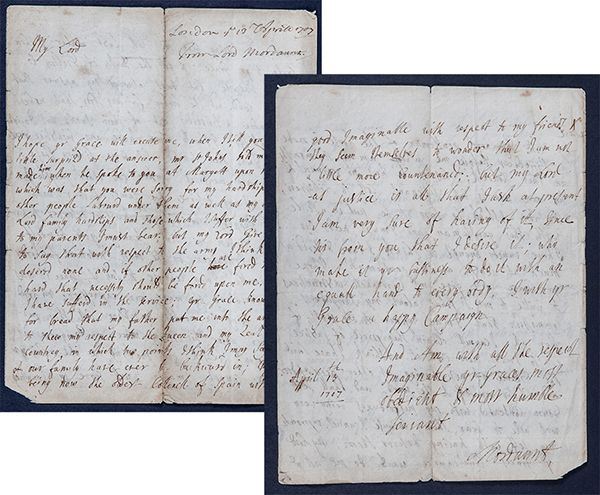 London ye 13th Aprill 1707
From Lord Mordaunt
My Lord
I hope yr Grace will excuse me, when I tell you
little surpris'd at the answer, mr St Johns tels me
made him when he spoke to you at Margett upon
which was that you were sorry for my hardships
other people labour'd under them as well as my
Lord family hardships and those which I suffer with
to my parents I must bear: but my Lord give
to say that with respect to the army I think
desired none and if other people have are forcd
hard that necessity should be forcd upon me,
I have suffer'd in the service: yr Grace knows
for bread that my father put me into the ar
to shew my respect to the Queen and my Zeal
Country, in which two points I think I may
of our family have ever been behaviour in,
being now the oldest Colonell of Spain wit
good Imaginable with respect to my friends &
they seem themselves to wonder that I am not
a little more countenanced: but my Lord
as justice is all that I ask at present
I am very sure of having of it, since
tis from you that I desire it: who
make it yr business to do it with an
equall hand to every body I wish yr
Grace a happy Campaign
And Am with all the respect
Imaginable yr graces most
obedient & most humble
servant
April 13th
1707
Mordaunt,